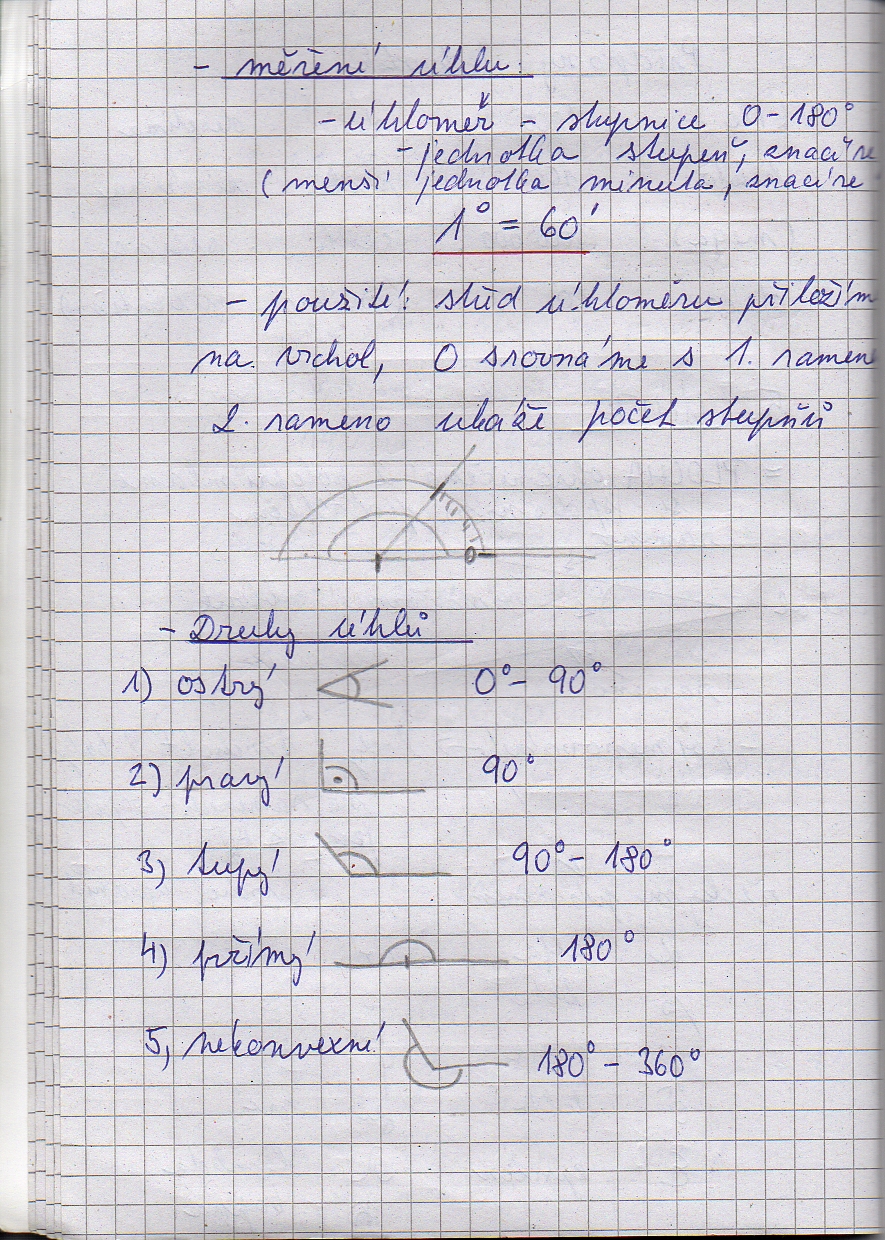 - měření úhlu:
- úhloměř - stupnice 0-180°
- jednotka stupeň, značíme
( menší jednotka minuta, značíme
1° = 60'
- použití: střed úhloměru přiložím
na vrchol, 0 srovnáme s 1. ramene
2. rameno ukáže počet stupňů
0
- Druhy úhlů
1) ostrý 0° - 90°
2) pravý 90°
3) tupý 90° - 180°
4) přímý 180°
5, nekonvexní 180° - 360°